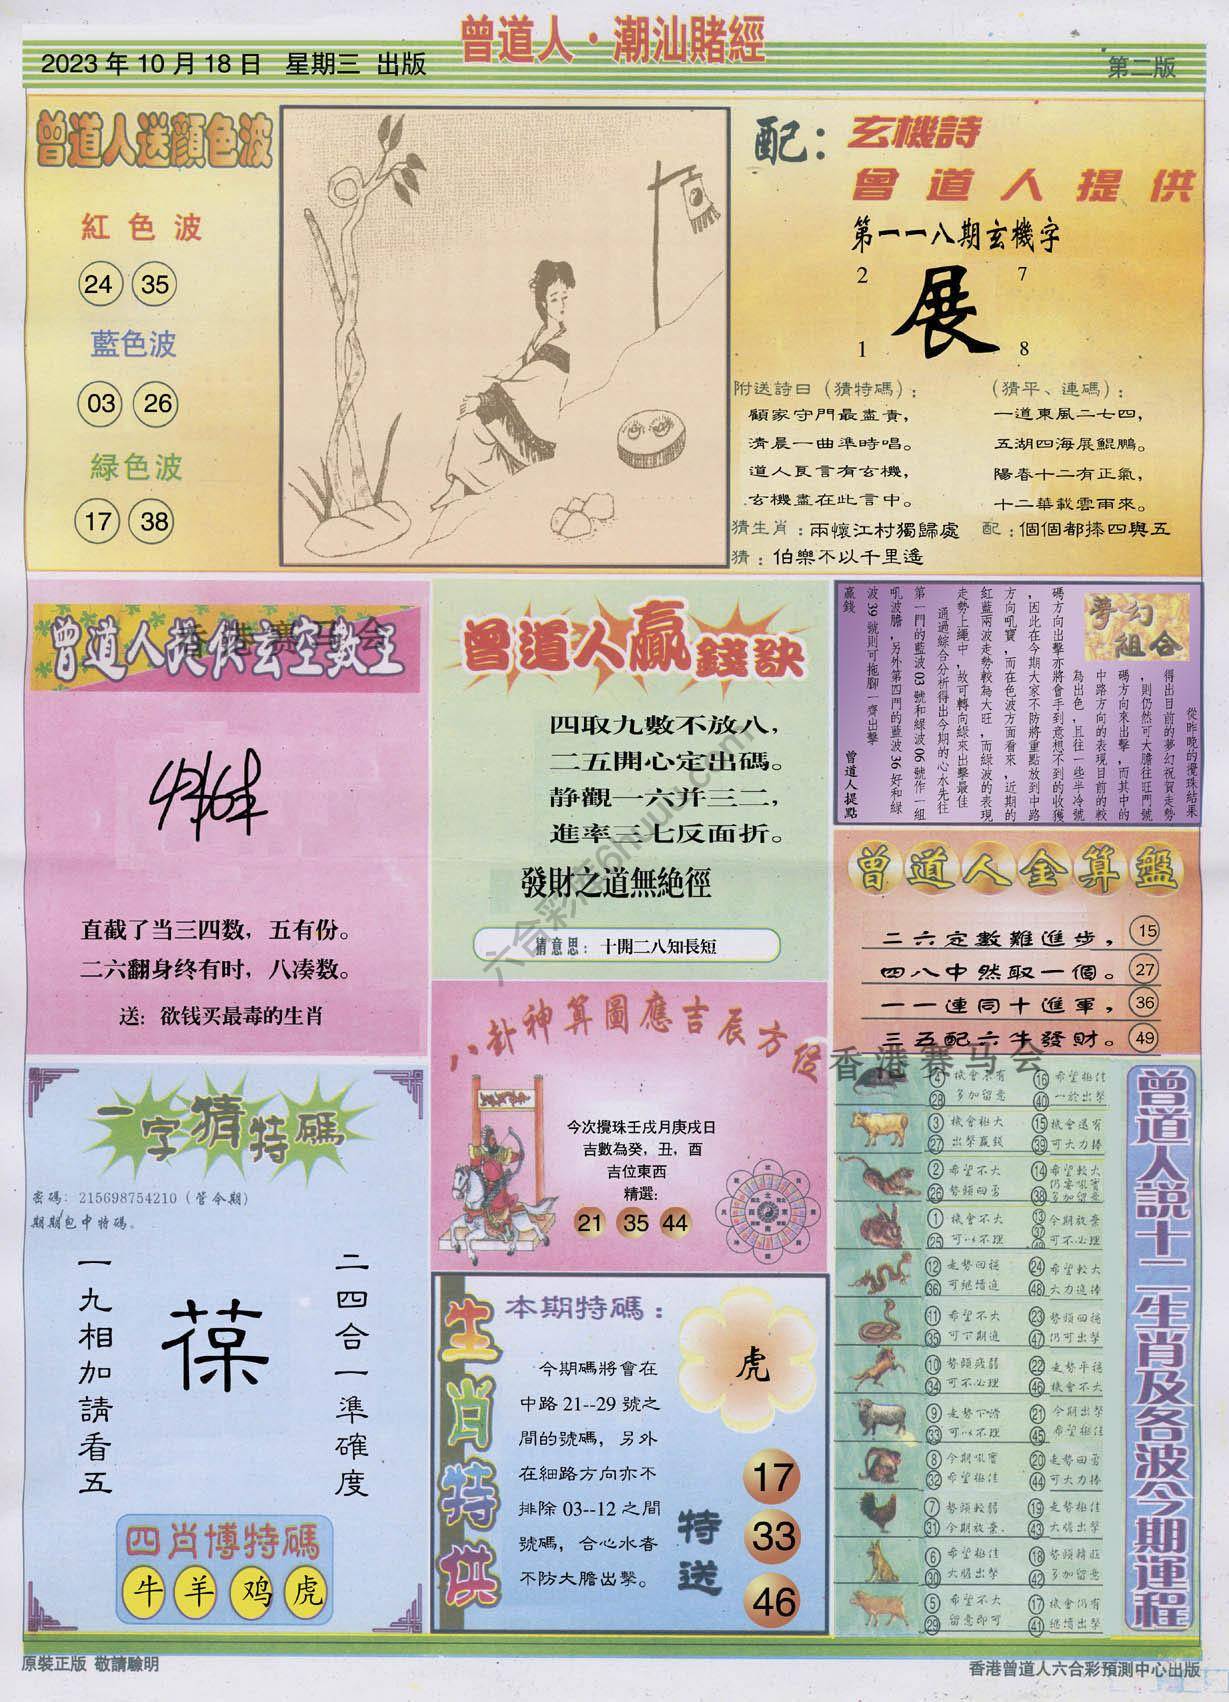 曾道人·潮汕賭經
2023 年 10 月 18 日 星期三 出版
第二版
曾道人送顏色波
紅色波
24 35
藍色波
03 26
緑色波
17 38
配：
玄機詩
曾道人提供
第一一八期玄機字
2 7
展
1 8
附送詩曰（猜特碼）：
顧家守門最盡責，
清晨一曲準時唱。
道人良言有玄機，
玄機盡在此言中。
（猜平、連碼）：
一道東風二七四，
五湖四海展鯤鵬。
陽春十二有正氣，
十二華載雲雨來。
猜生肖：兩懷江村獨歸處
配：個個都捧四與五
猜：伯樂不以千里遙
曾道人提供玄空數王
香港赛马会
直截了当三四数，五有份。
二六翻身终有时，八凑数。
送：欲钱买最毒的生肖
曾道人贏錢訣
四取九數不放八，
二五開心定出碼。
静觀一六并三二，
進率三七反面折。
發財之道無絶徑
猜意思：十開二八知長短
夢幻組合
從昨晚的攪珠結果
得出目前的夢幻祝賀走勢
，則仍然可大膽往旺門號
碼方向來出擊，而其中的
中路方向的表現目前的較
為出色，且往一些半冷號
碼方向出擊亦將會手到意想不到的收獲
，因此在今期大家不防將重點放到中路
方向吼寶，而在色波方面看來，近期的
紅藍兩波走勢較為大旺，而綠波的表現
走勢上繩中，故可轉向綠來出擊最佳
通過綜合分析得出今期的心水先往
第一門的藍波 03 號和綠波 06 號作一組
吼波膽，另外第四門的藍波 36 好和綠
波 39 號則可拖腳一齊出擊
贏錢
曾道人提點
曾道人金算盤
二六定數難進步， 15
四八中然取一個。 27
一一連同十進軍， 36
三五配六牛發財。 49
香港赛马会
八卦神算圖應吉辰方位
今次攪珠壬戌月庚戌日
吉數為癸，丑，酉
吉位東西
精選：
21 35 44
一字猜特碼
密碼：215698754210（管今期）
期期包中特碼。
二四合一準確度
葆
一九相加請看五
四肖博特碼
牛 羊 鸡 虎
生肖特供
本期特碼：
虎
今期碼將會在
中路 21--29 號之
間的號碼，另外
在細路方向亦不
排除 03--12 之間
號碼，合心水者
不防大膽出擊。
特送
17
33
46
曾道人説十二生肖及各波今期運程
4 機會不有 16 希望極佳
28 多加留意 40 一於出擊
3 機會極大 15 機會還有
27 出擊贏錢 39 可大力捧
2 希望不大 14 希望較大
26 勢頭回勇 38 多加留意
1 機會不大 13 今期放棄
25 可以不理 37 可不必理
12 走勢回穩 24 希望較大
36 可繼續追 48 大力進捧
11 希望不大 23 勢頭回穩
35 可下期追 47 仍可出擊
10 勢頭疲弱 22 走勢平穩
34 可不必理 46 機會不大
9 走勢下滑 21 今期出擊
33 可以不理 45 希望極佳
8 今期吼寶 20 走勢回勇
32 希望極佳 44 可大力捧
7 勢頭較弱 19 走勢極佳
31 今期放棄. 43 大膽出擊
6 希望極佳 18 勢頭轉旺
30 大膽出擊 42 多加留意
5 希望不大 17 機會仍有
29 留意即可 41 繼續出擊
六合彩库6huu.com
原裝正版 敬請驗明
香港曾道人六合彩預測中心出版